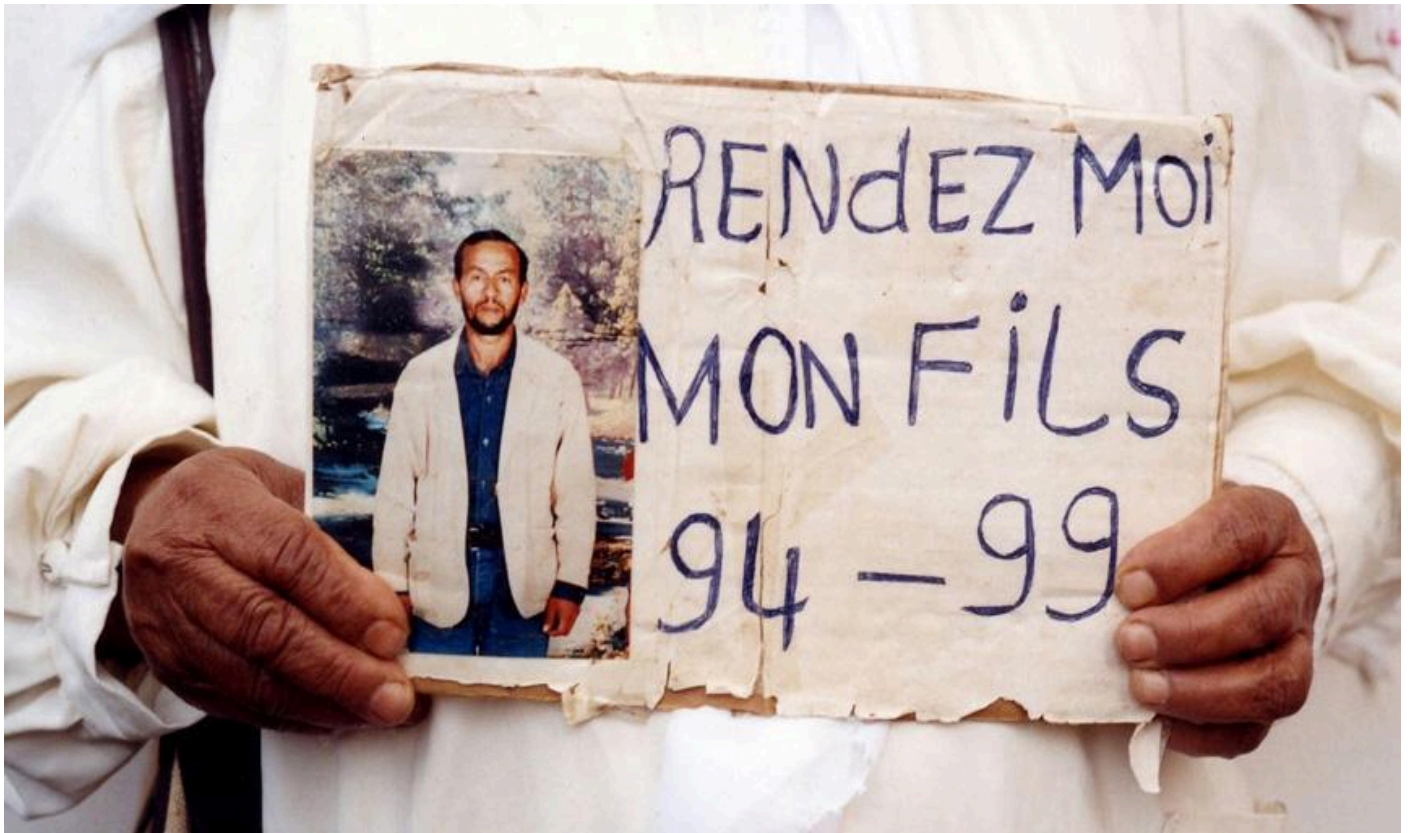 RENdEZ MOi
MON FiLS
94 – 99